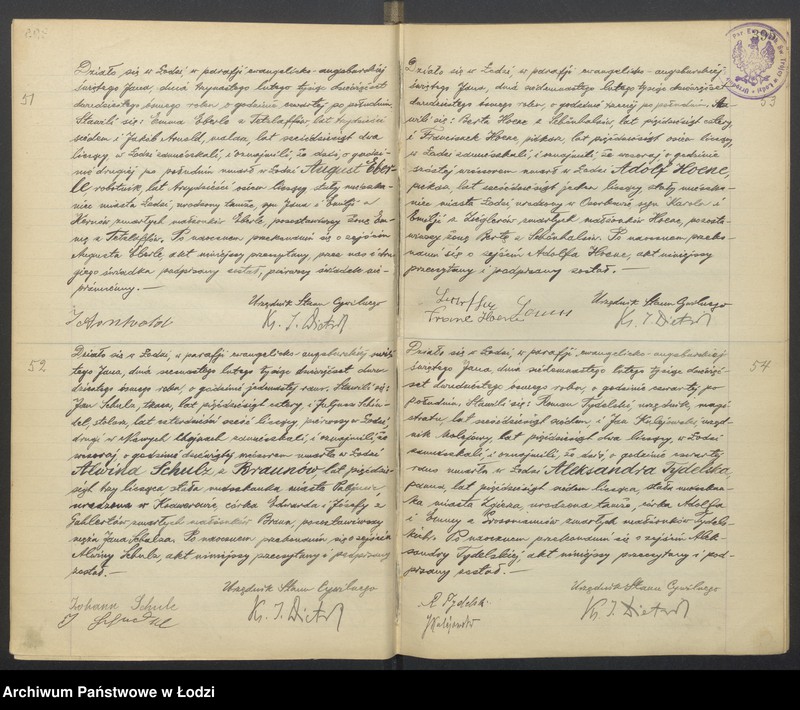 51
Działo się w Łodzi w parafji ewangelicko-augsburskiej
świętego Jana, dnia trzynastego lutego tysiąc dziewięćset
dwudziestego ósmego roku, o godzinie czwartej po południu.
Stawili się: Emma Eberle z Tetzlaffów, lat trzydzieści
siedem i Jakób Arnwald, malarz, lat sześćdziesiąt dwa
liczący, w Łodzi zamieszkali, i oznajmili, że dziś, o godzi-
nie drugiej po południu umarł w Łodzi August Eber-
le robotnik, lat trzydzieści osiem liczący stały mieszka-
niec miasta Łodzi, urodzony tamże, syn Jana i Emilji z
małżonków Eberle, pozostawiwszy żonę Em-
mę z Tetzlaffów. Po naocznem przekonaniu się o zejściu
Augusta Eberle, akt niniejszy przeczytany, przez nas i dru-
giego świadka podpisany został, pierwszy świadek nie-
piśmienny.—
Urzędnik Stanu Cywilnego
Ks. J. Dietrich
52
Działo się w Łodzi, w parafji ewangelicko-augsburskiej świę-
tego Jana, dnia siedemnastego lutego tysiąc dziewięćset dwu-
dziestego ósmego roku, o godzinie jedenastej rano. Stawili się:
Jan Schulz, tkacz, lat pięćdziesiąt cztery, i Juljusz Schin-
del, stolarz, lat czterdzieści sześć liczący, pierwszy w Łodzi,
drugi w Nowych Chojnach zamieszkali, i oznajmili, że
wczoraj o godzinie dziewiątej wieczorem umarła w Łodzi
Alwina Schulz, z Braunów, lat pięćdzie-
siąt trzy licząca stała mieszkanka miasta Pabjanic,
urodzona w córka Edwarda i Józefy z
Gahlertów zmarłych małżonków Braun, pozostawiwszy
męża Jana Schulza. Po naocznem przekonaniu się o zejściu
Alwiny Schulz, akt niniejszy przeczytany i podpisany
został.—
Urzędnik Stanu Cywilnego
Johann Schulz
Ks. J. Dietrich
53
Działo się w Łodzi, w parafji ewangelicko-augsburskiej
świętego Jana, dnia siedemnastego lutego tysiąc dziewięćset
dwudziestego ósmego roku, o godzinie trzeciej po południu. Sta-
wili się: Berta Hoene z Schönhalsów, lat pięćdziesiąt cztery
i Franciszek Hoene piekarz, lat pięćdziesiąt osiem liczący,
w Łodzi zamieszkali, i oznajmili, że wczoraj o godzinie
szóstej wieczorem umarł w Łodzi Adolf Hoene,
piekarz, lat sześćdziesiąt jeden liczący, stały mieszka-
niec miasta Łodzi urodzony w Ozorkowie syn Karola i
Emilji z Zieglerów zmarłych małżonków Hoene, pozosta-
wiwszy żonę Bertę z Schönhalsów. Po naocznem przeko-
naniu się o zejściu Adolfa Hoene, akt niniejszy
przeczytany i podpisany został.—
Urzędnik Stanu Cywilnego
Ks. J. Dietrich
54
Działo się w Łodzi, w parafji ewangelicko-augsburskiej
świętego Jana, dnia siedemnastego lutego tysiąc dziewięć-
set dwudziestego ósmego roku, o godzinie czwartej po
południu. Stawili się: Roman Tydelski, urzędnik magi-
stratu, lat sześćdziesiąt siedem, i Jan Kalijewski, urzęd-
nik kolejowy, lat pięćdziesiąt dwa liczący, w Łodzi
zamieszkali, i oznajmili, że dziś, o godzinie czwartej
rano umarła w Łodzi Aleksandra Tydelska,
panna, lat pięćdziesiąt siedem licząca, stała mieszkan-
ka miasta Zgierza, urodzona tamże, córka Adolfa
i Emmy z zmarłych małżonków Tydel-
skich. Po naocznem przekonaniu się o zejściu Alek-
sandry Tydelskiej, akt niniejszy przeczytany i pod-
pisany został.—
Urzędnik Stanu Cywilnego
R Tydelski
Ks. J. Dietrich
Archiwum Państwowe w Łodzi